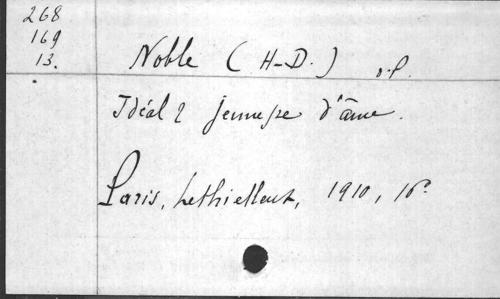 268
169
13.
Noble (H-D.) o.p.
Idéal & jeunesse d'âme.
Paris, Lethielleux, 1910, 16°